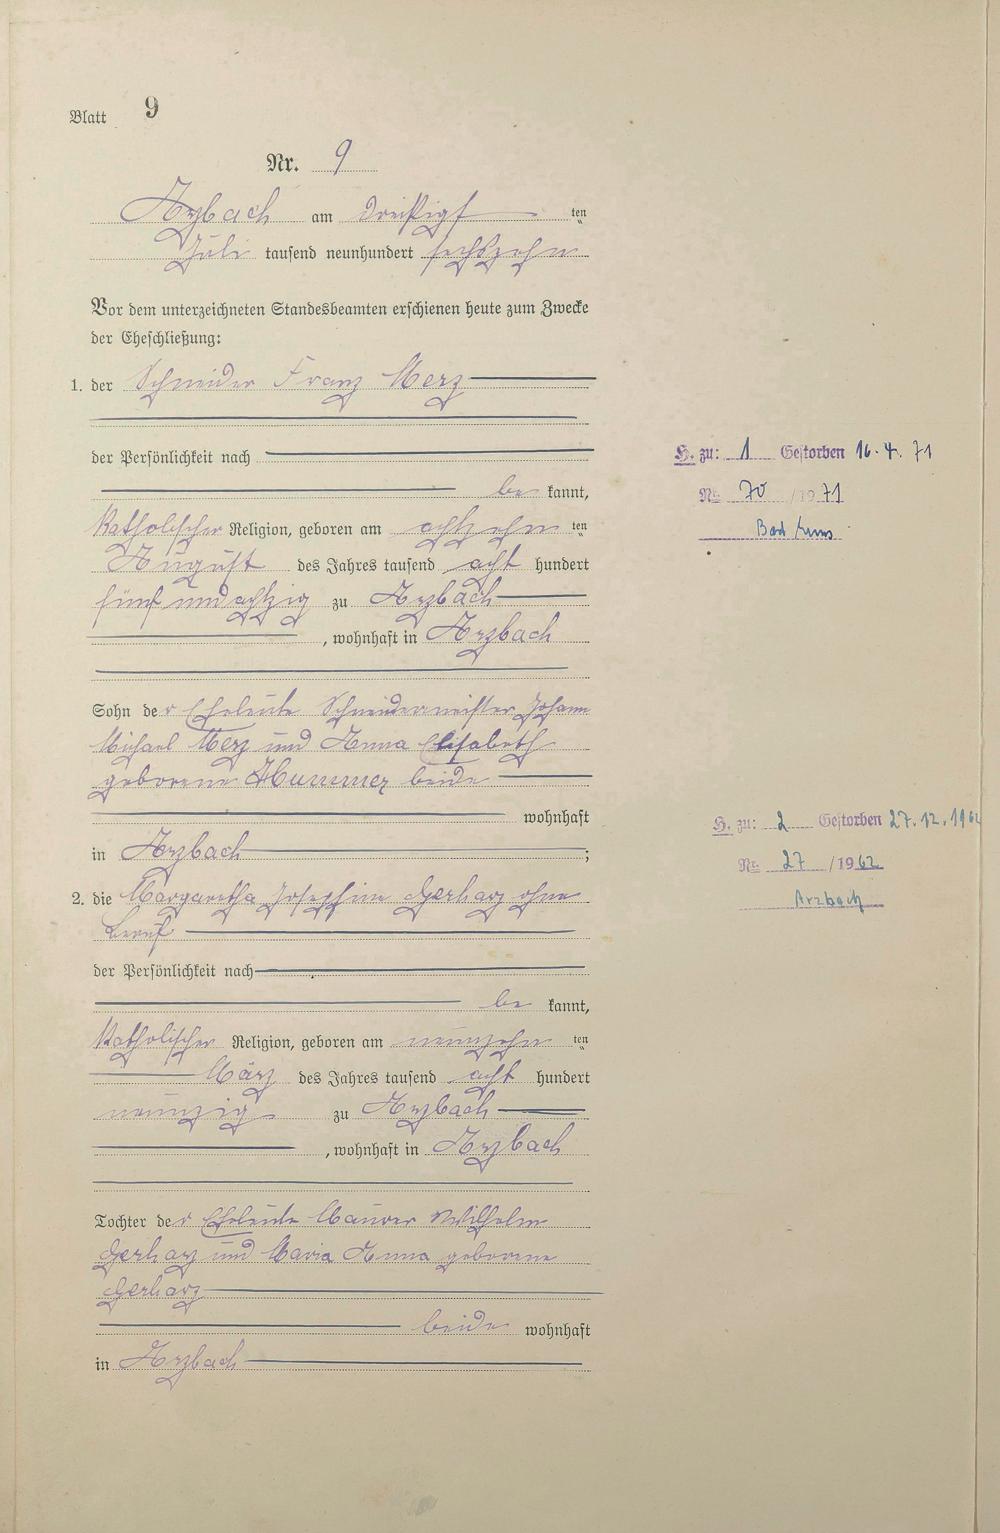 Blatt 9
Nr. 9
Arzbach am dreißigsten
Juli tausend neunhundert sechszehn
Vor dem unterzeichneten Standesbeamten erschienen heute zum Zwecke
der Eheschließung:
1. der Schneider Franz Merz
der Persönlichkeit nach
be kannt,
katholischer Religion, geboren am achtzehn ten
August des Jahres tausend acht hundert
fünf und achtzig zu Arzbach
, wohnhaft in Arzbach
Sohn der Eheleute Schneidermeister Johann
Michael Merz und Anna Elisabeth
geborene Hummer beide
wohnhaft
in Arzbach ;
2. die Margaretha Josephine Gerharz ohne
Beruf
der Persönlichkeit nach
be kannt,
katholischer Religion, geboren am neunzehn ten
März des Jahres tausend acht hundert
neunzig zu Arzbach
, wohnhaft in Arzbach
Tochter der Eheleute Maurer Wilhelm
Gerharz und Maria Anna geborene
Gerharz
beide wohnhaft
in Arzbach
H. zu: 1 Gestorben 16.4.71
Nr. 70 /1971
Bad Ems
H. zu: 2 Gestorben 27.12.1962
Nr. 27 /1962
Arzbach